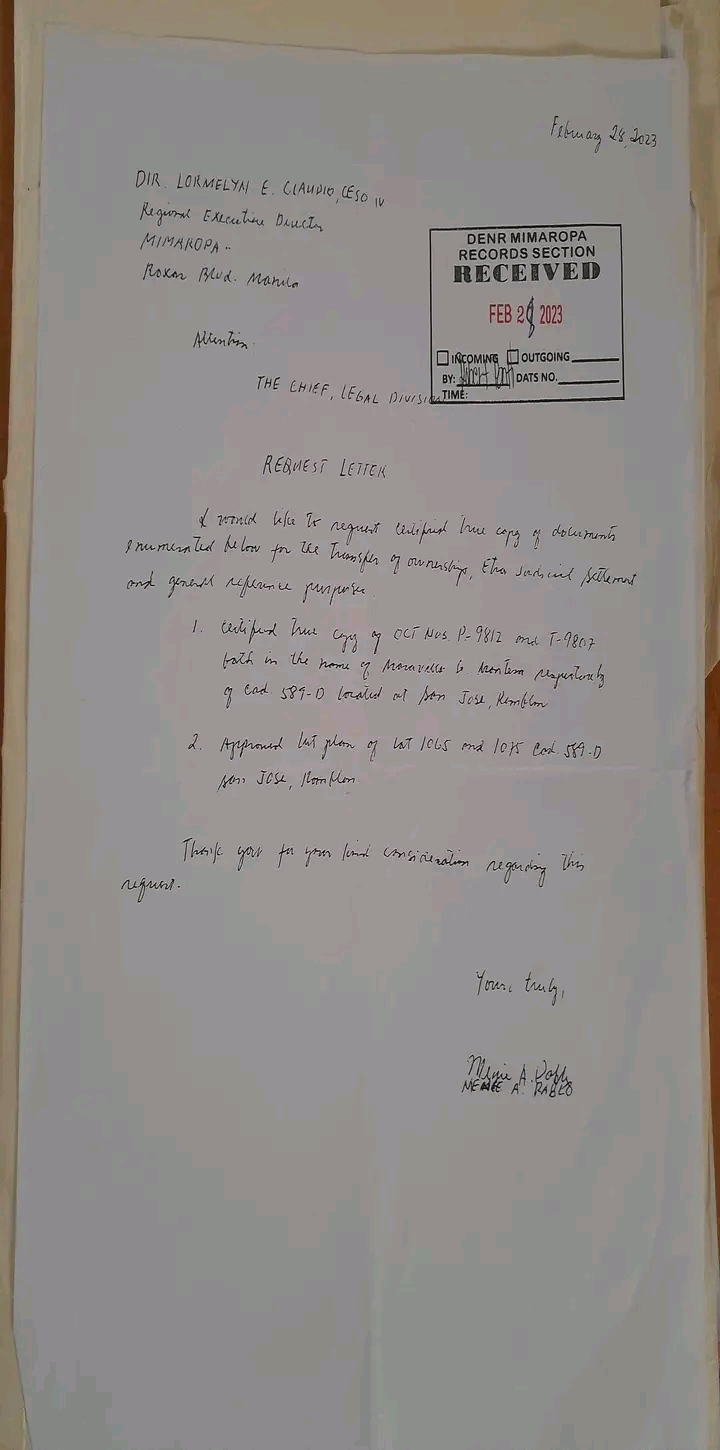 February 28, 2023
DIR. LORMELYN E. CLAUDIO, CESO IV
Regional Executive Director
MIMAROPA -
Roxas Blvd. Manila
DENR MIMAROPA
RECORDS SECTION
RECEIVED
FEB 28 2023
INCOMING OUTGOING
BY: DATS NO.
TIME:
Attention:
THE CHIEF, LEGAL DIVISION
REQUEST LETTER
I would like to request certified true copy of documents
enumerated below for the transfer of ownership, Etra Judicial Settlement
and general reference purposes.
1. Certified true copy of OCT Nos. P-9812 and T-9807
both in the name of to respectively
of Cad. 589-D Located at San Jose, Romblon
2. Approved lot plan of Lot 1065 and 1075 Cad 589-D
San Jose, Romblon.
Thank you for your kind consideration regarding this
request.
Yours truly,
A. PABLO